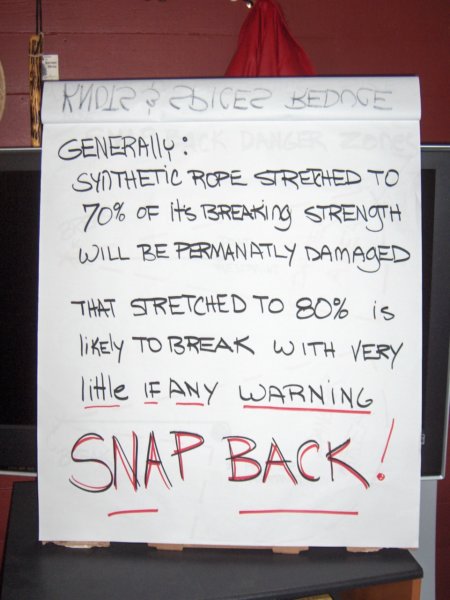 KNOTS & SPLICES REDUCE
GENERALLY:
SYNTHETIC ROPE STRETCHED TO
70% OF it's BREAKING STRENGTH
WILL BE PERMANATLY DAMAGED
THAT STRETCHED TO 80% is
likELY TO BREAK WITH VERY
little IF ANY WARNING
SNAP BACK!